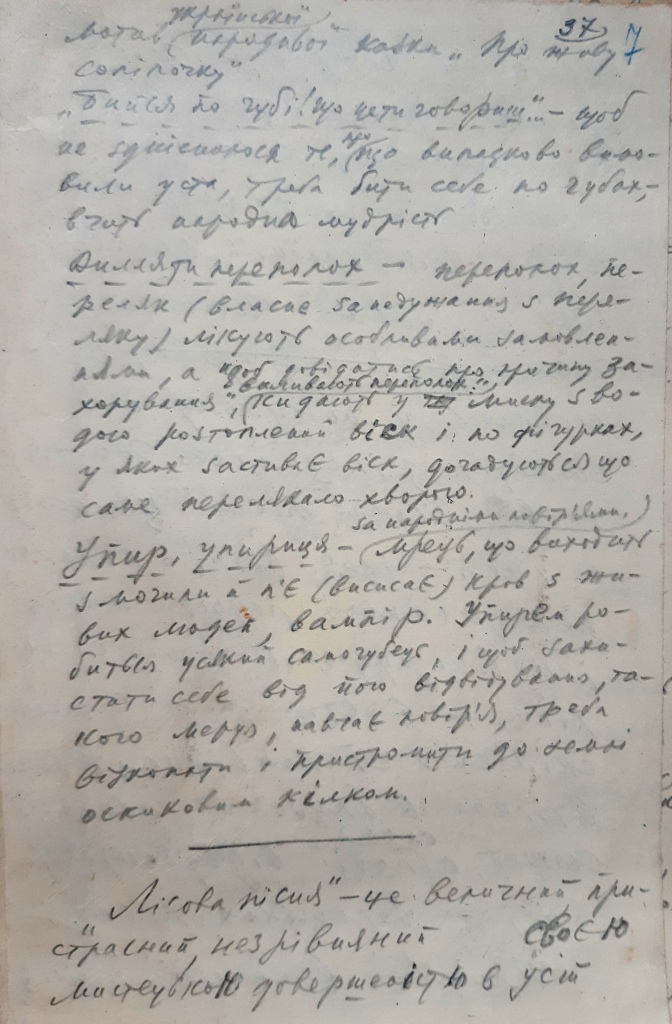 37 7
української
мотив народньої казки „Про живу
сопілочку"
„Бийся по губі! що це ти говориш"... – щоб
не здійснилося те, що випадково вимо-
вили уста, треба бити себе по губах,
вчить народна мудрість
Виляти переполох – переполох, пе-
реляк (власне занедужання з пере-
ляку) лікують особливими замовлен-
нями, а щоб довідатись про причину за-
хорування, „виливають переполох":
кидають у миску з во-
дою розтоплений віск і по фігурках,
у яких застиває віск, догадуються що
саме перелякало хворого.
за народніми повір'ями,
Упир, упириця – мрець, що виходить
з могили й п'є (висисає) кров з жи-
вих людей, вампір. Упирем ро-
биться усякий самогубець, і щоб захи-
стити себе від його відвідування, та-
кого мерця, навчає повір'я, треба
відкопати і пристромити до землі
осиковим кілком.
„Лісова пісня" – це величний, при-
страсний, незрівняний своєю
мистецькою довершеністю в усій